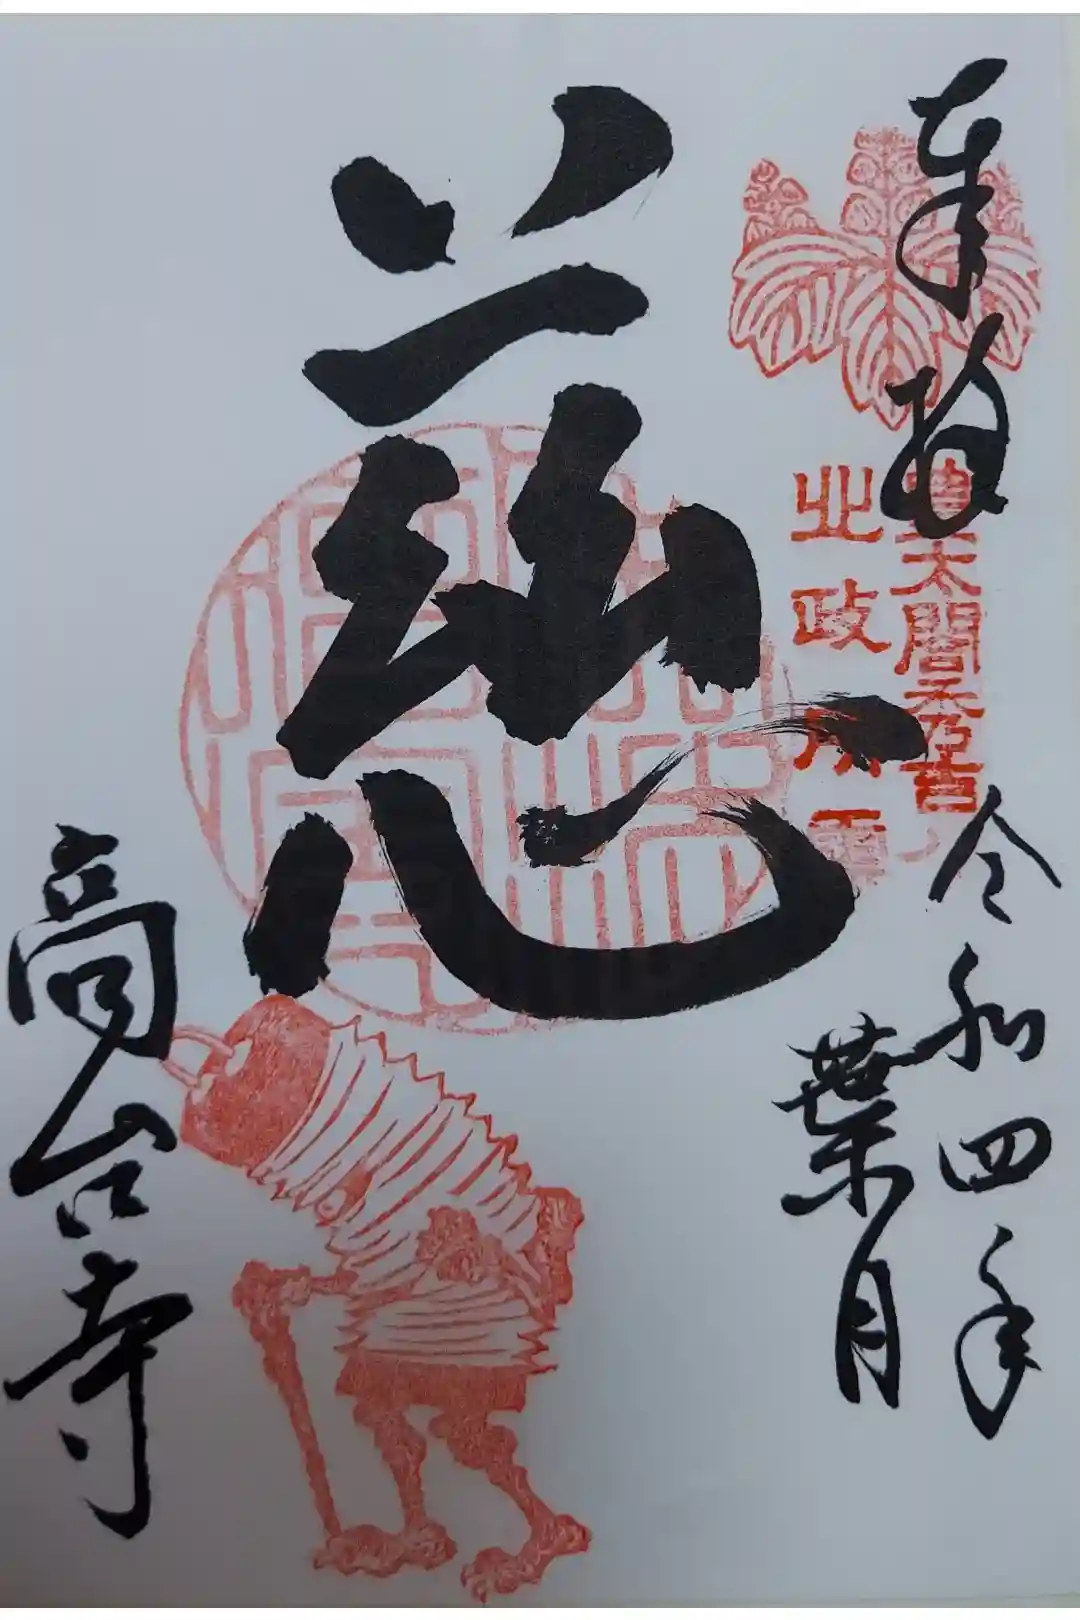 奉拝
豊太閤秀吉公
北政所霊
令和四年
葉月
慈
高台寺